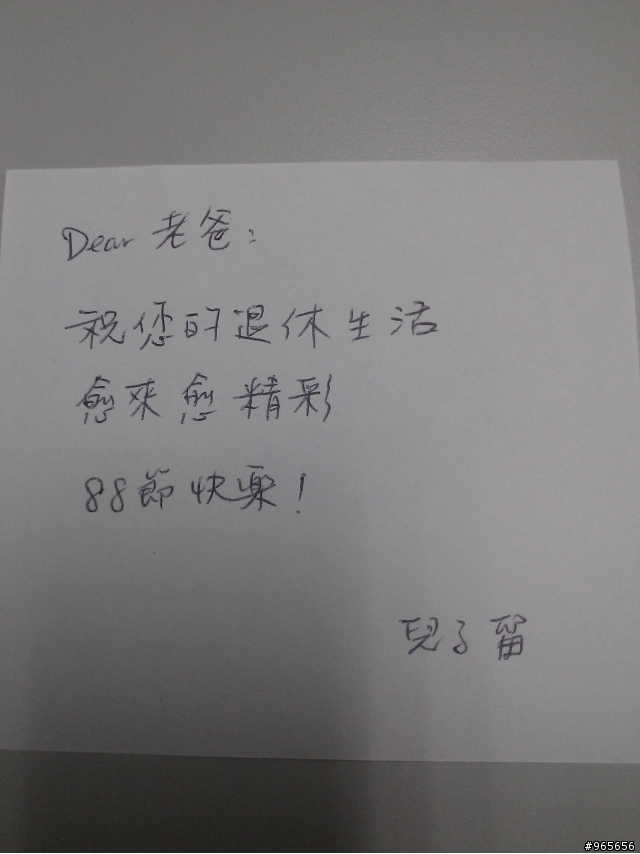 Dear 老爸：
祝您的退休生活
愈來愈精彩
88節快樂！
兒子留
#965656